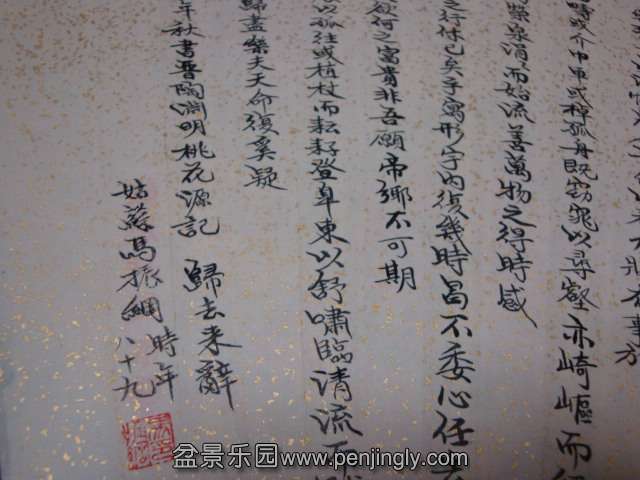 有事於
疇或命巾車或棹孤舟既窈窕以尋壑亦崎嶇而經
榮泉涓而始流善萬物之得時感
之行休已矣乎寓形宇內復幾時曷不委心任去
欲何之富貴非吾願帝鄉不可期
以孤往或植杖而耘耔登皋東以舒嘯臨清流而
歸盡樂夫天命復奚疑
年秋書晉陶淵明桃花源記 歸去来辭
姑蘇馮振綱 時年八十九
盆景乐园www.penjingly.com